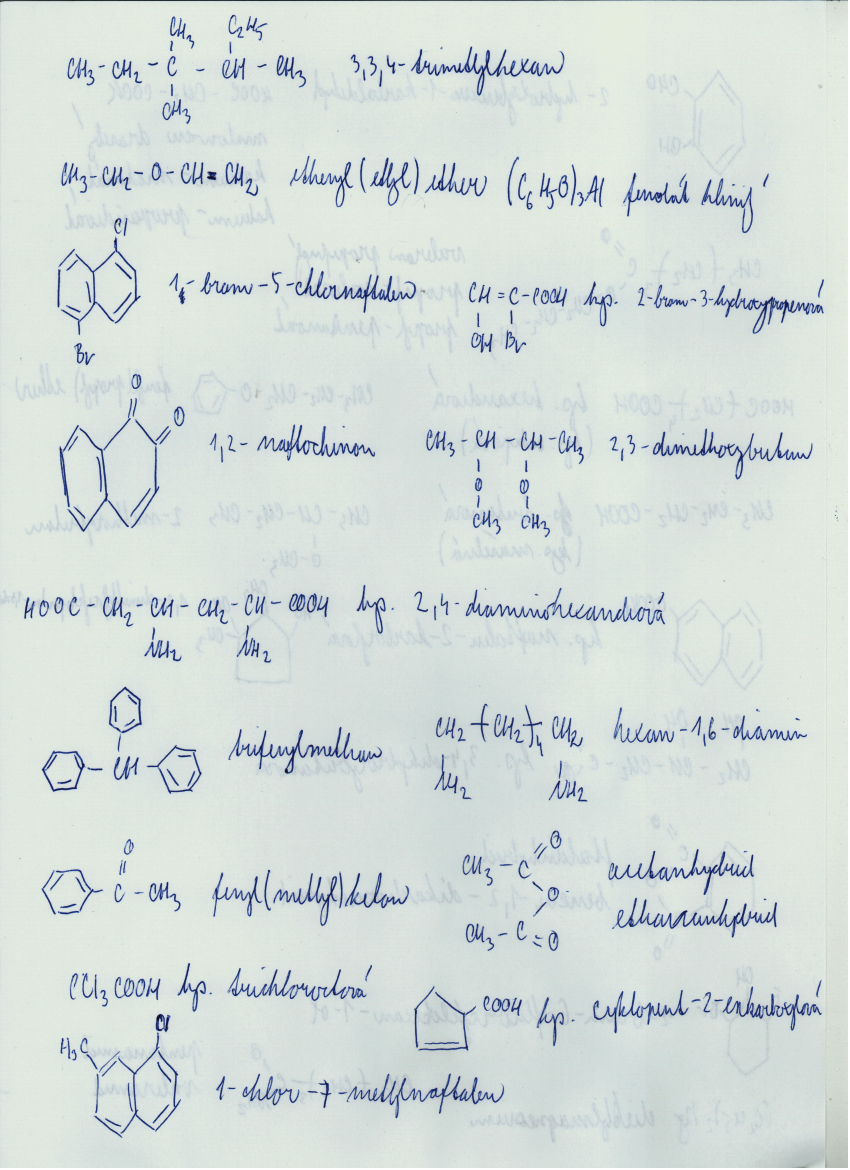 CH3 C2H5
CH3 - CH2 - C - CH - CH3 3,3,4-trimethylhexan
CH3
CH3-CH2-O-CH=CH2 ethenyl(ethyl)ether (C6H5O)3Al fenolát hlinitý
Cl
1-brom-5-chlornaftalen
Br
CH=C-COOH kys. 2-brom-3-hydroxypropenová
OH Br
O
O
1,2-naftochinon
CH3-CH-CH-CH3 2,3-dimethoxybutan
O O
CH3 CH3
HOOC-CH2-CH-CH2-CH-COOH kys. 2,4-diaminohexandiová
NH2 NH2
CH trifenylmethan
CH2-(CH2)4-CH2 hexan-1,6-diamin
NH2 NH2
O
C-CH3 fenyl(methyl)keton
CH3-C=O acetanhydrid
O
CH3-C=O ethananhydrid
CCl3COOH kys. trichloroctová
COOH kys. cyklopent-2-enkarboxylová
H3C Cl
1-chlor-7-methylnaftalen